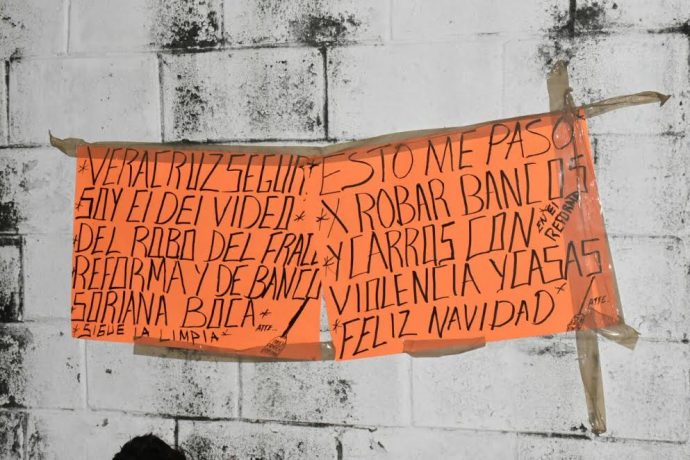 *VERACRUZ SEGUR
*SOY El DEl VIDEO*
DEL ROBO DEL FRACC
REFORMA Y DE BANCO
SORIANA BOCA*
ATTE...
*SIGUE LA LIMPIA*
*ESTO ME PASO*
*X ROBAR BANCOS
*Y CARROS CON*
EN El
REFORMA
VIOLENCIA Y CASAS
*FELIZ NAVIDAD*
ATTE...